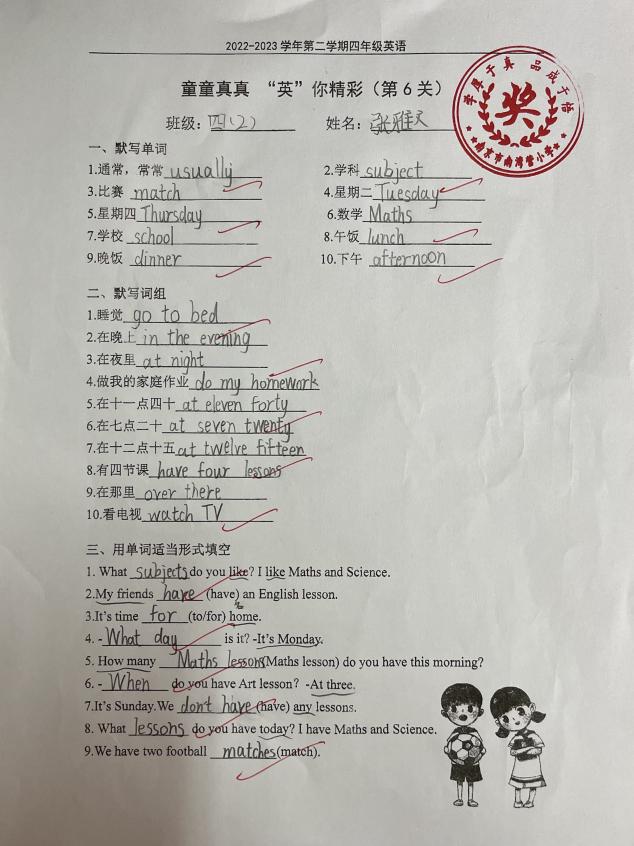 2022-2023 学年第二学期四年级英语
童童真真 “英”你精彩（第 6 关）
学思于真 品成于悟
奖
南京市南湾营小学
班级: 四(2) 姓名: 张雅文
一、默写单词
1.通常，常常 usually 2.学科 subject
3.比赛 match 4.星期二 Tuesday
5.星期四 Thursday 6.数学 Maths
7.学校 school 8.午饭 lunch
9.晚饭 dinner 10.下午 afternoon
二、默写词组
1.睡觉 go to bed
2.在晚上 in the evening
3.在夜里 at night
4.做我的家庭作业 do my homework
5.在十一点四十 at eleven forty
6.在七点二十 at seven twenty
7.在十二点十五 at twelve fifteen
8.有四节课 have four lessons
9.在那里 over there
10.看电视 watch TV
三、用单词适当形式填空
1. What subjects do you like? I like Maths and Science.
2.My friends have (have) an English lesson.
3.It's time for (to/for) home.
4. -What day is it? -It's Monday.
5. How many Maths lessons(Maths lesson) do you have this morning?
6. -When do you have Art lesson? -At three.
7.It's Sunday.We don't have (have) any lessons.
8. What lessons do you have today? I have Maths and Science.
9.We have two football matches(match).